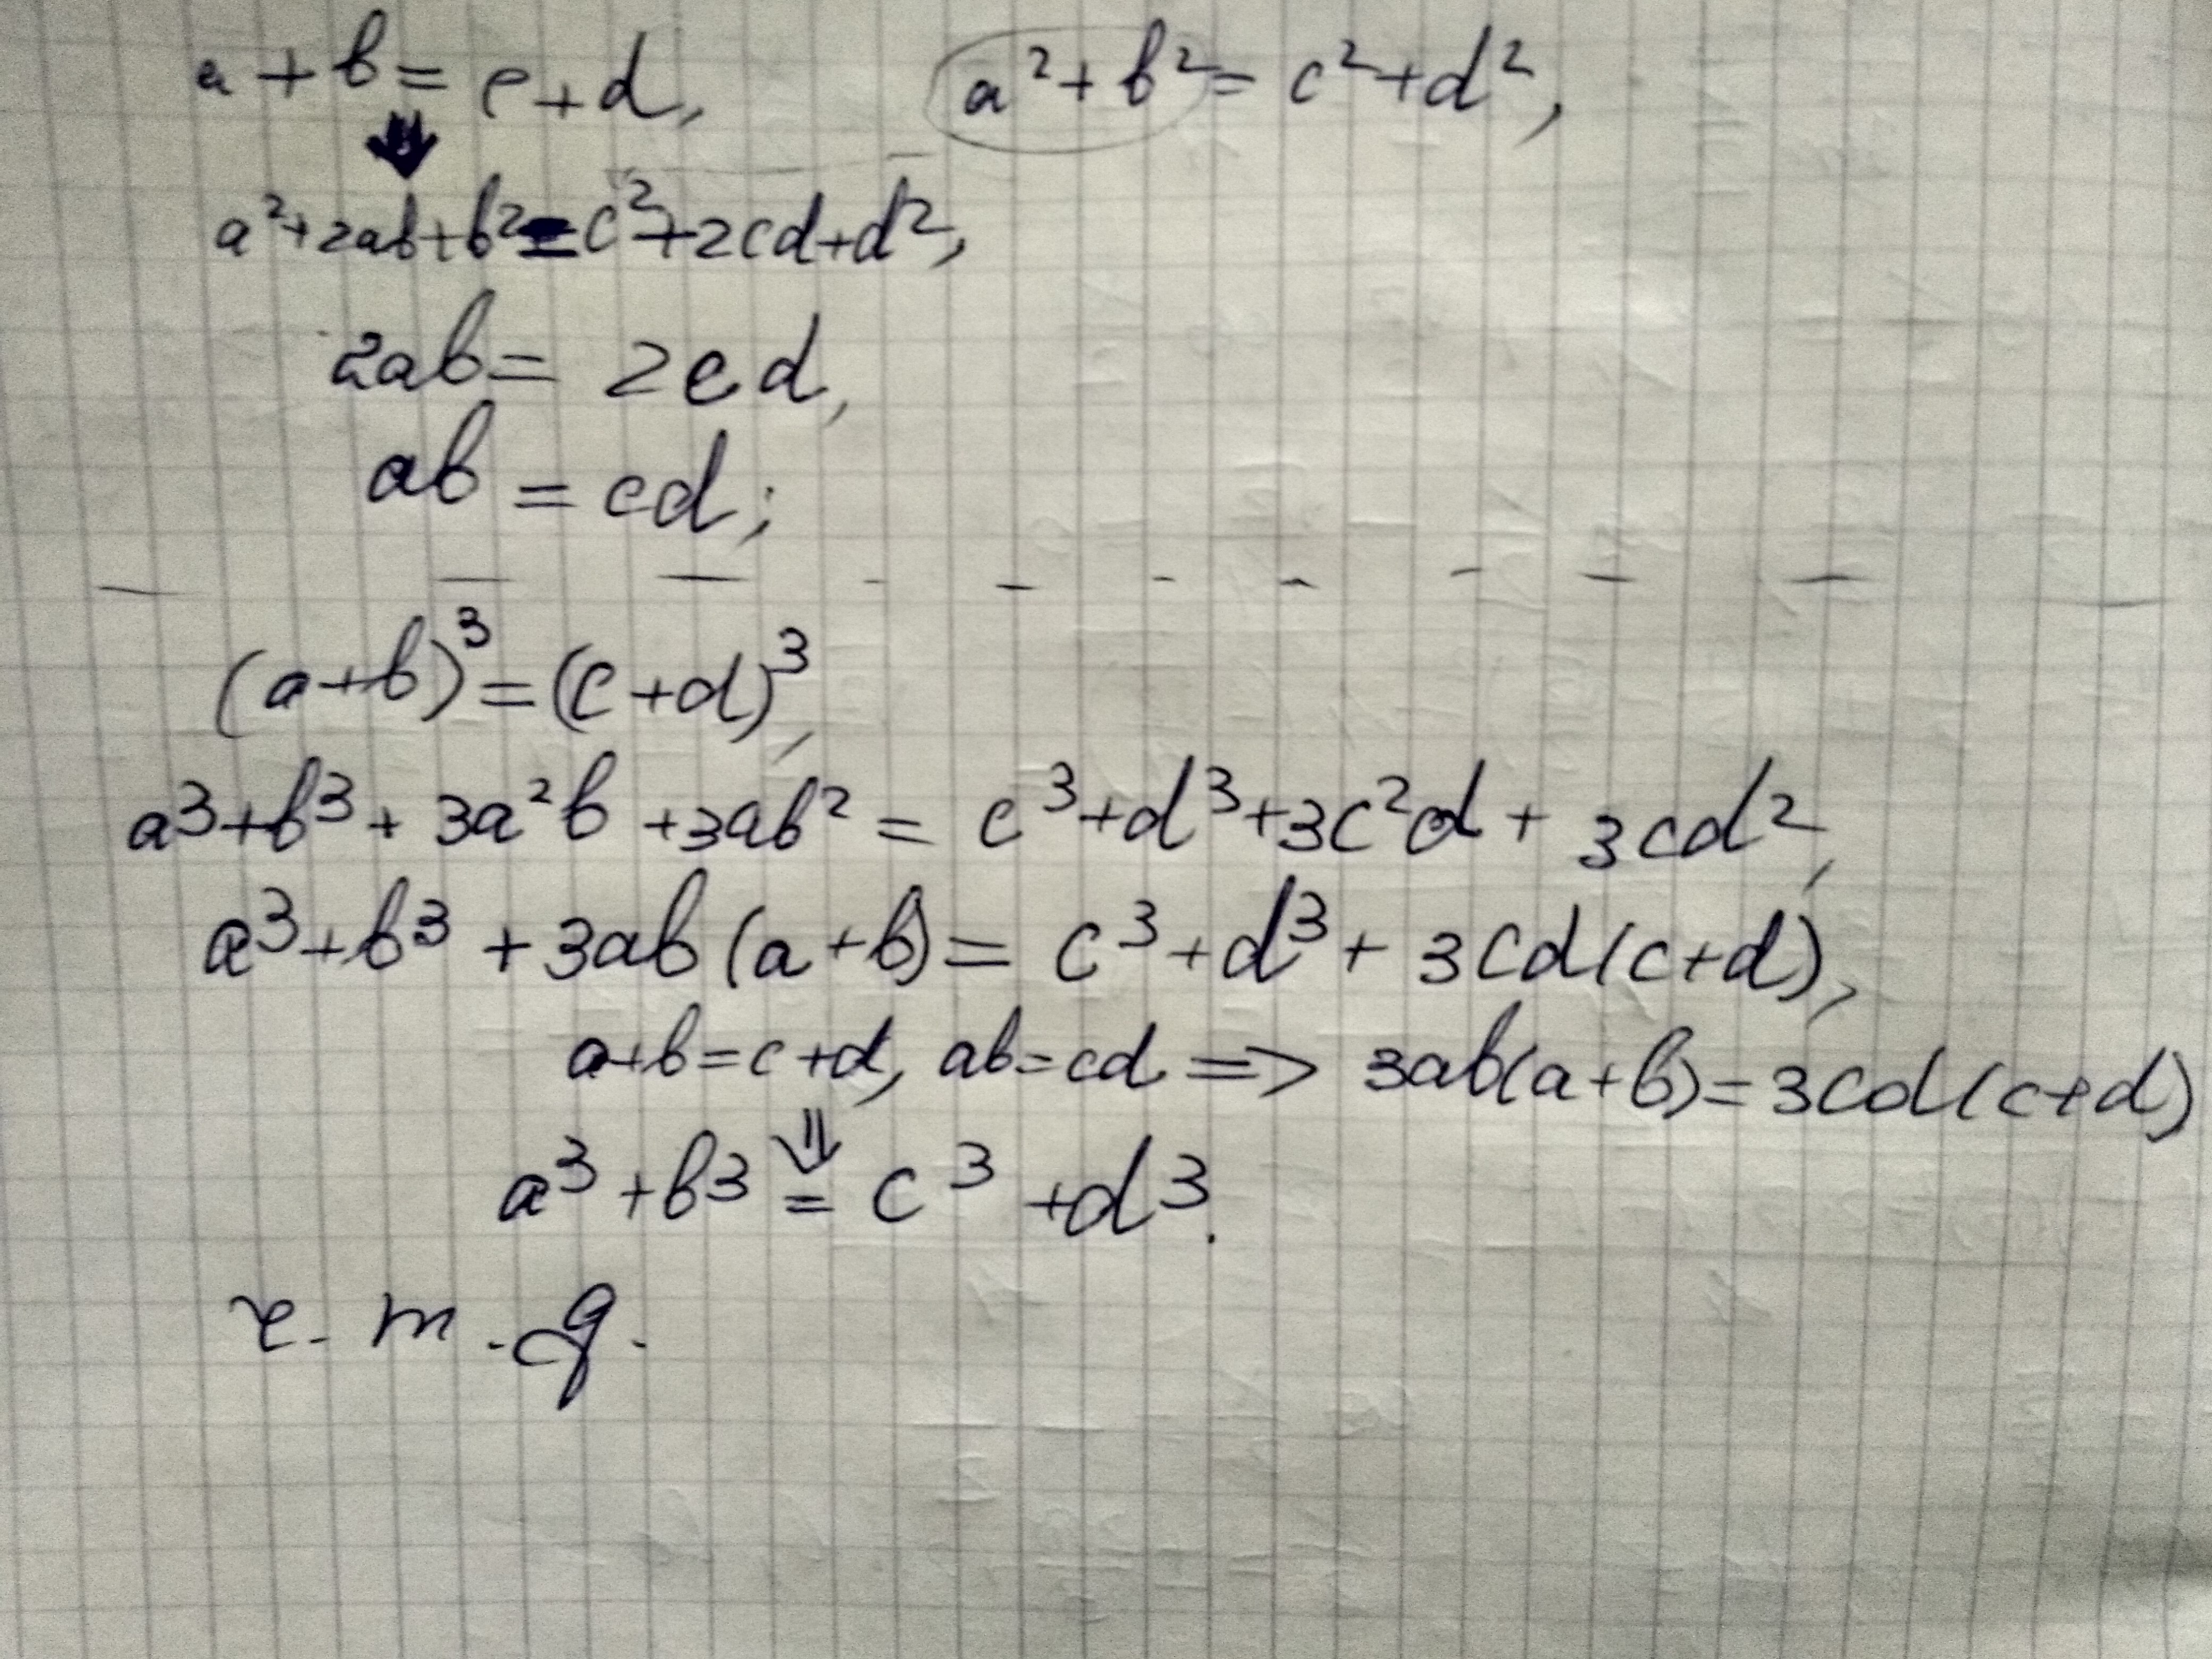 a + b = c + d, a² + b² = c² + d²,
⇓
a² + 2ab + b² = c² + 2cd + d²,
2ab = 2cd,
ab = cd;
(a+b)³ = (c+d)³,
a³ + b³ + 3a²b + 3ab² = c³ + d³ + 3c²d + 3cd²,
a³ + b³ + 3ab(a+b) = c³ + d³ + 3cd(c+d),
a+b = c+d, ab = cd => 3ab(a+b) = 3cd(c+d)
⇓
a³ + b³ = c³ + d³.
ч. т. д.